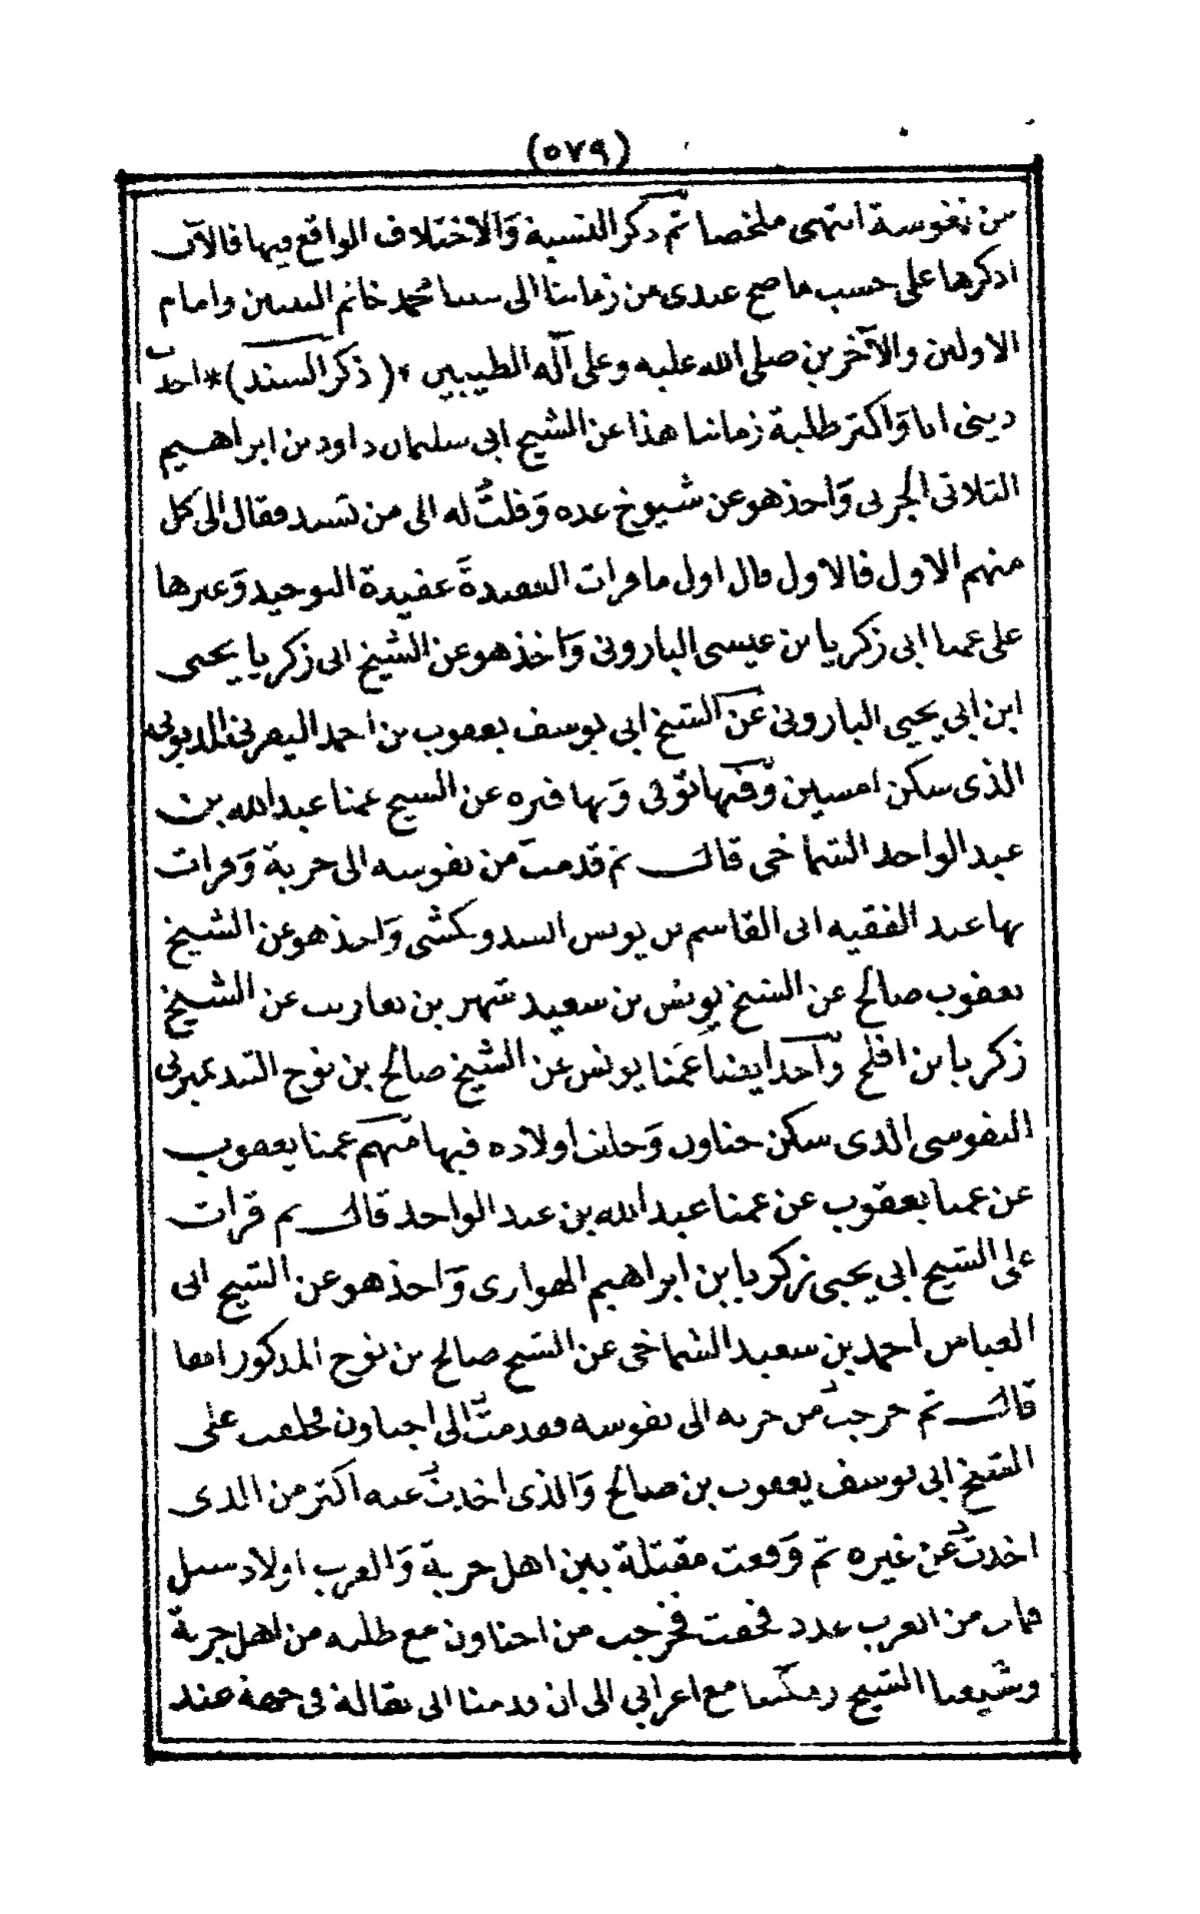 (٥٧٩)
من نفوسة انتهى ملخصا ثم ذكر النسبة والاختلاف الواقع فيها فالآن
اذكرها على حسب ما صح عندى من زماننا الى سيدنا محمد خاتم النبيين وامام
الاولين والآخرين صلى الله عليه وعلى آله الطيبين * (ذكر السند) * اخذت
دينى انا واكثر طلبة زماننا هذا عن الشيخ ابى سليمان داود بن ابراهيم
التلاتى الجربى واخذ هو عن شيوخ عدة وقلت له الى من تسند فقال الى كل
منهم الاول فالاول قال اول ما قرات العقيدة عقيدة التوحيد وغيرها
على عمنا ابى زكريا بن عيسى البارونى واخذ هو عن الشيخ ابى زكريا يحيى
ابن ابى يحيى البارونى عن الشيخ ابى يوسف يعقوب بن احمد اليفرنى
الذى سكن امسين وفيها توفى وبها قبره عن الشيخ عمنا عبد الله بن
عبد الواحد الشماخى قال ثم قدمت من نفوسه الى جربة وقرات
بها عند الفقيه ابى القاسم بن يونس السدويكشى واخذ هو عن الشيخ
يعقوب صالح عن الشيخ يونس بن سعيد شهر بن تعاريت عن الشيخ
زكريا بن افلح واخذ ايضا عمنا يونس عن الشيخ صالح بن نوح التندميرتى
النفوسى الذى سكن جناون وخلف اولاده فيها منهم عمنا يعقوب
عن عمنا يعقوب عن عمنا عبد الله بن عبد الواحد قال ثم قرات
على الشيخ ابى يحيى زكريا بن ابراهيم الهوارى واخذ هو عن الشيخ ابى
العباس احمد بن سعيد الشماخى عن الشيخ صالح بن نوح المذكور
قال ثم خرجت من جربه الى نفوسه وقدمت الى اجناون فحلقت على
الشيخ ابى يوسف يعقوب بن صالح والذى اخذت عنه اكثر من الذى
اخذت عن غيره ثم وقعت مقتلة بين اهل جربة والعرب اولاد شبل
فمات من العرب عدد فخفت فخرجت من اجناون مع طلبه من اهل جربة
وشيعنا الشيخ مع اعرابى الى ان قدمنا الى تقالة فى جمعة عند